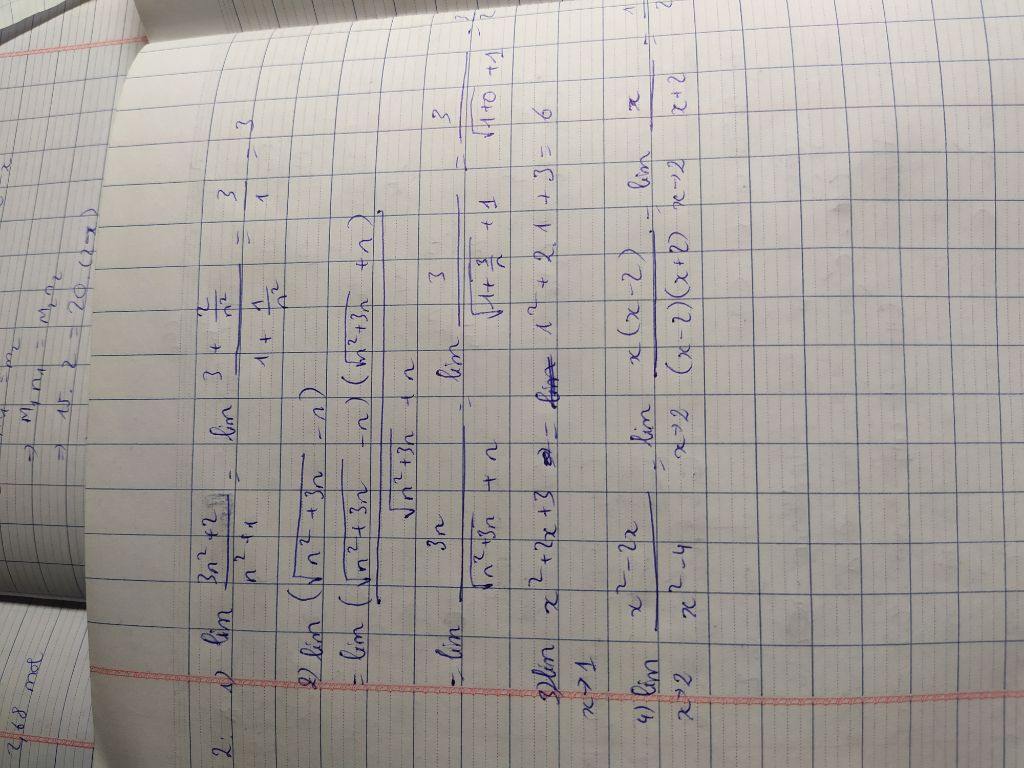 ⇒ M₁n₁ = M₂n₂
⇒ 15.2 = 20(2-x)
2,68 mol
2. 1) lim (3n²+2)/(n²+1) = lim (3 + 2/n²)/(1 + 1/n²) = 3/1 = 3
2) lim (√(n²+3n) - n)
= lim (√(n²+3n) - n)(√(n²+3n) + n)/(√(n²+3n) + n)
= lim 3n/(√(n²+3n) + n) = lim 3/(√(1+3/n) + 1) = 3/(√(1+0) + 1) = 3/2
3) lim x² + 2x + 3 = 1² + 2.1 + 3 = 6
x→1
4) lim (x² - 2x)/(x² - 4) = lim x(x-2)/((x-2)(x+2)) = lim x/(x+2) = 1/2
x→2 x→2 x→2